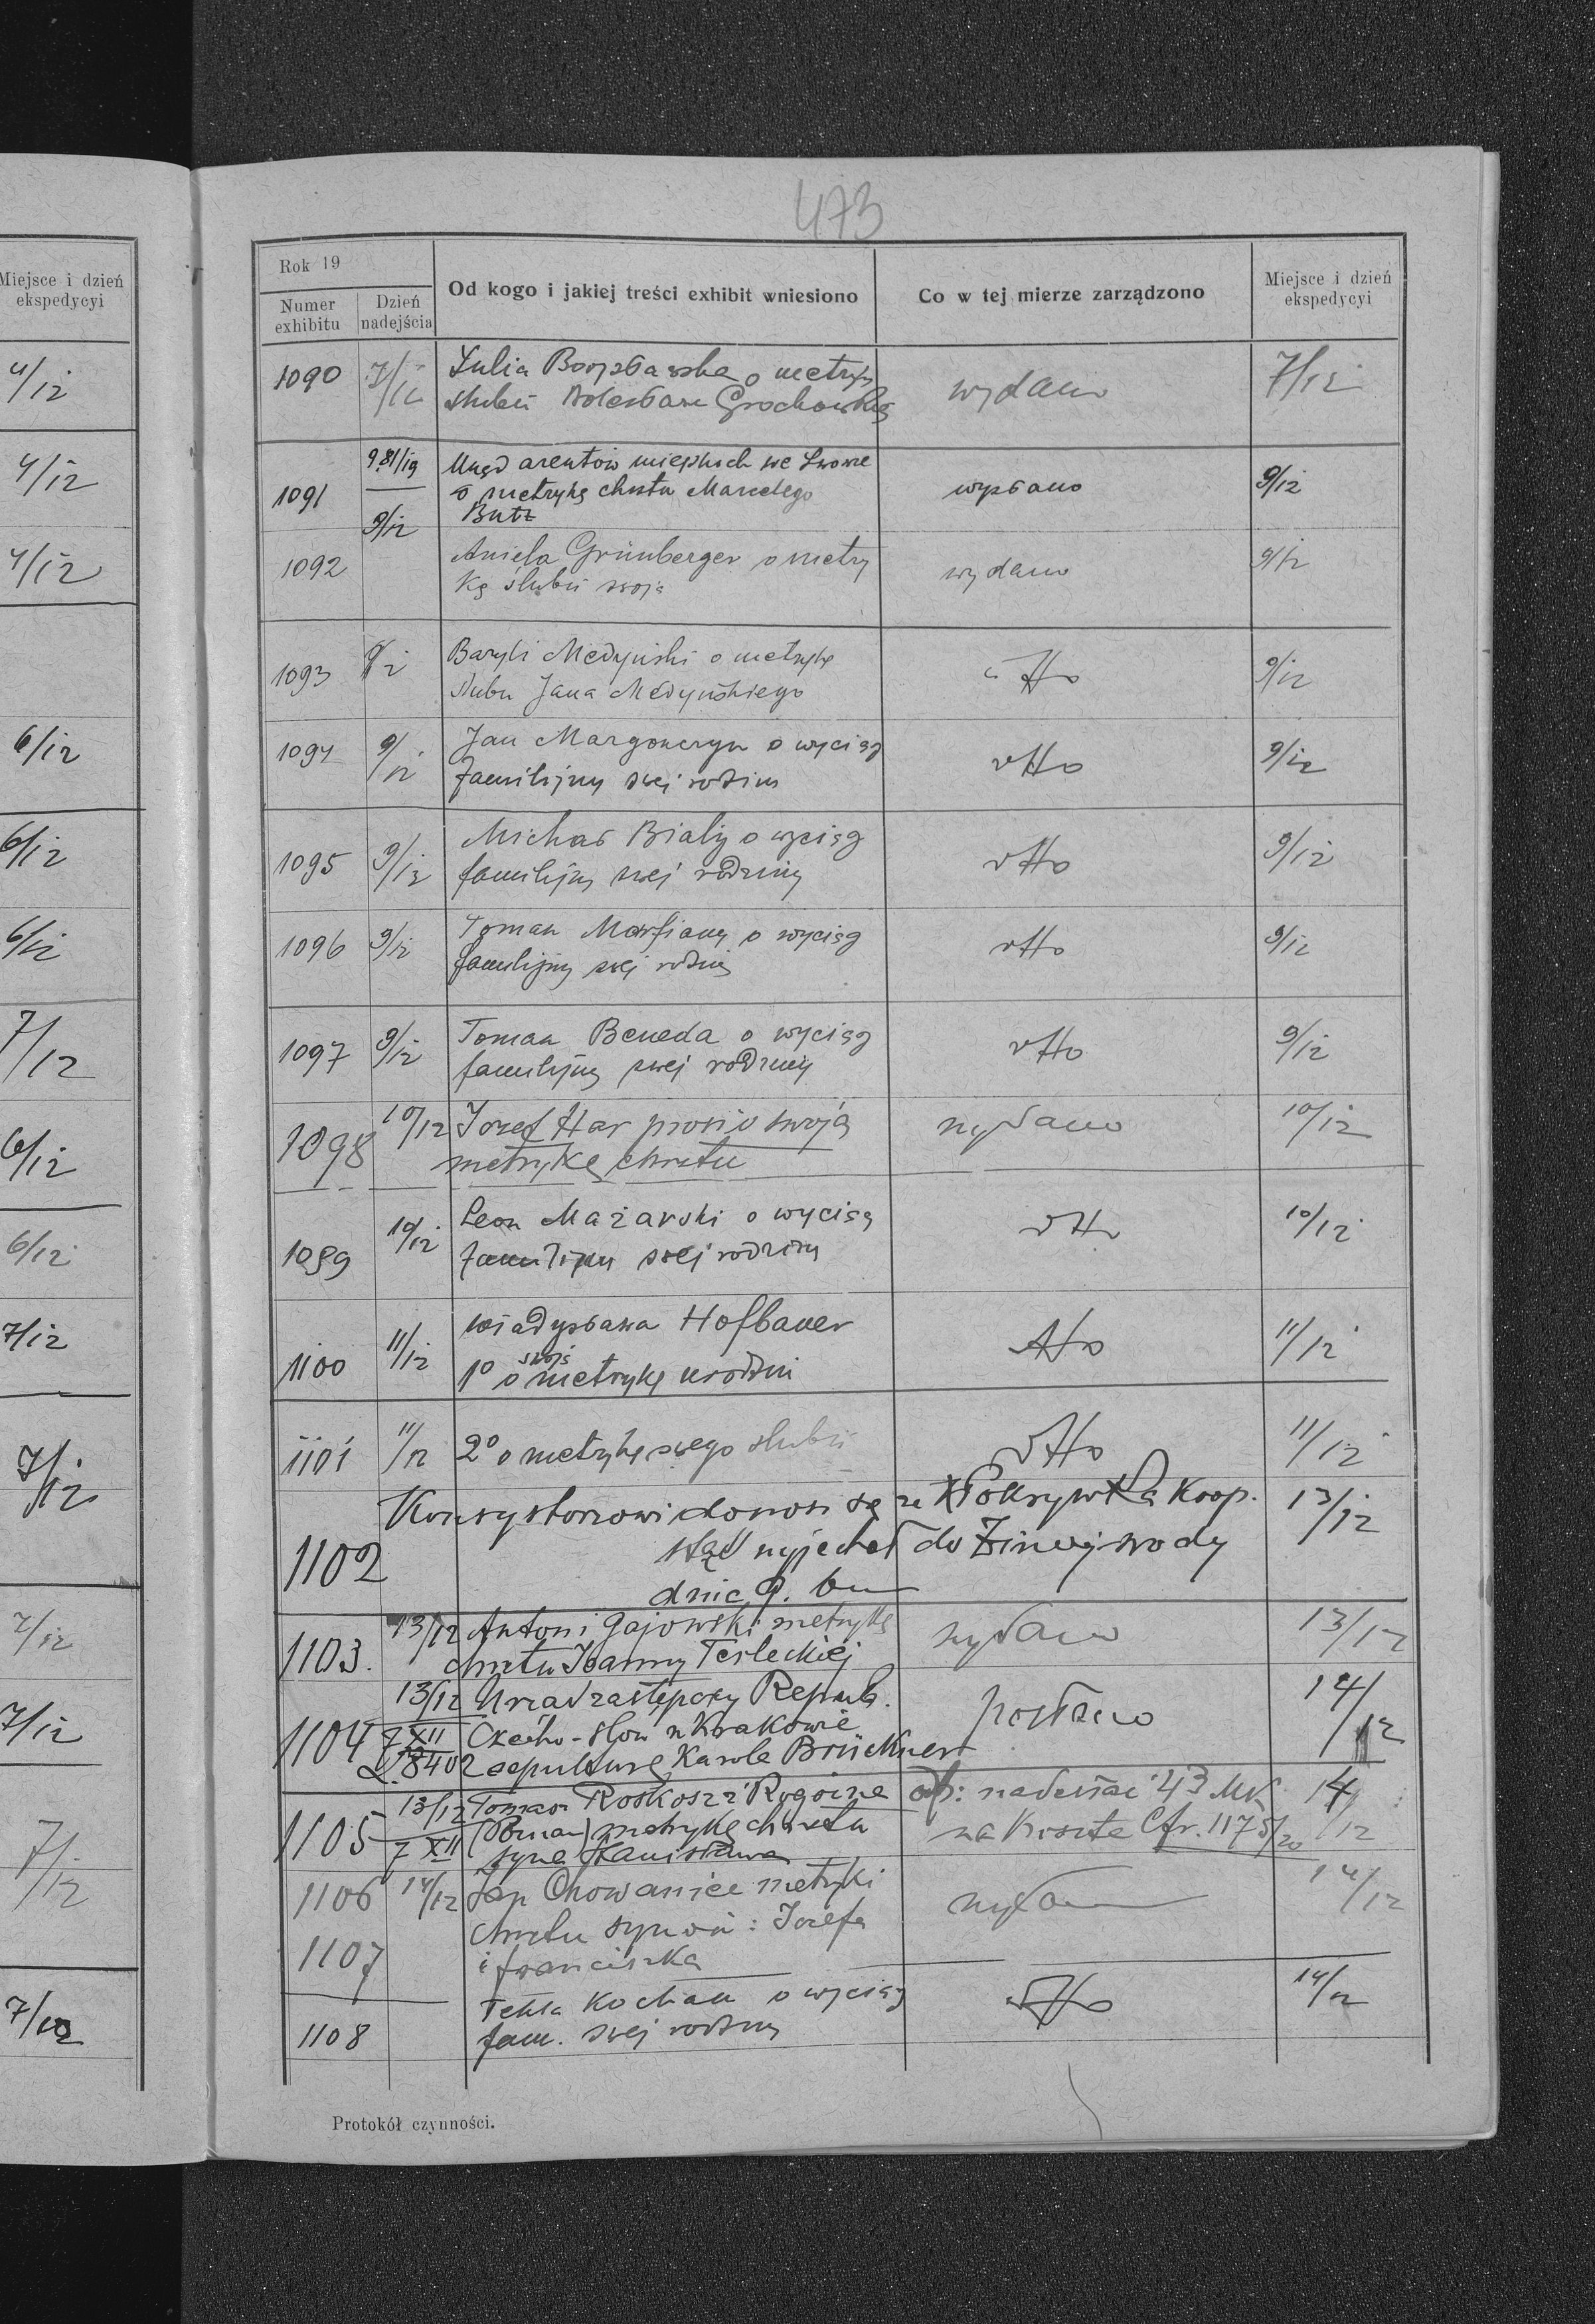 Miejsce i dzień
ekspedycyi
4/12
4/12
4/12
6/12
6/12
6/12
7/12
6/12
6/12
7/12
7/12
7/12
7/12
7/12
7/12
473
Rok 19
Numer
exhibitu
Dzień
nadejścia
Od kogo i jakiej treści exhibit wniesiono
Co w tej mierze zarządzono
Miejsce i dzień
ekspedycyi
1090 7/12 Julia o metrykę wydano 7/12
ślubu Grochowskiej
981/19 miejskich we Lwowie
1091 o metrykę chrztu Marcelego wysłano 9/12
9/12 Butz
1092 Aniela Grünberger o metry wydano 9/12
kę ślubu swoją
1093 9/12 Bazyli Medyński o metrykę dtto 9/12
ślubu Jana Medyńskiego
1094 9/12 Jan o wyciąg dtto 9/12
familijny swej rodziny
1095 9/12 Michał Biały o wyciąg dtto 9/12
familijny swej rodziny
1096 9/12 Toman o wyciąg dtto 9/12
familijny swej rodziny
1097 9/12 Toman Beneda o wyciąg dtto 9/12
familijny swej rodziny
1098 10/12 Józef Har prosi o swoją wydano 10/12
metrykę chrztu
1099 10/12 Leon Mazarski o wyciąg dtto 10/12
familijny swej rodziny
Władysława Hofbauer
1100 11/12 1º o swoją metrykę urodzin dtto 11/12
1101 11/12 2º o metrykę swego ślubu dtto 11/12
Konsystorzowi donosi się że X Pokrywka Koop. 13/12
1102 stąd wyjechał do Zimnejwody
dnia 9. bm
1103. 13/12 Antoni Gajowski metrykę wydano 13/12
chrztu Joanny Terleckiej
13/12 Urząd zastępczy Repub.
1104 7 XII Czecho-słow w Krakowie posłano 14/12
L. 8402 sepulturę Karola Brückner
13/12 Tomasz Roskosz z Rogoźna odp: nadesłać 43 Mk 14/12
1105 7 XII (Poznań) metrykę chrztu na koszta Cfr. 1175/20
syna Stanisława
1106 14/12 Jan Chowaniec metryki wydano 14/12
chrztu synów: Józefa
1107 i Franciszka
Tekla Kochan o wyciąg dtto 14/12
1108 fam. swej rodziny
Protokół czynności.